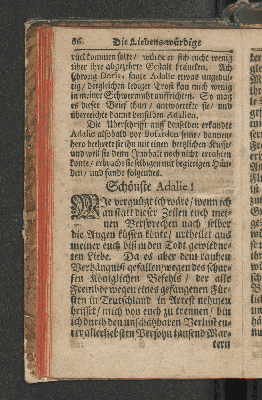 66. Die Liebenswürdige
rück kommen solte / würde er sich nicht wenig
über ihre abgezehrte Gestalt kräncken. Ach
schweig Doris, sagte Adalie etwas ungedul-
tig / dergleichen lediger Trost kan mich wenig
in meiner Schwermuht auffrichten. So mag
es dieser Brief thun / antwortete sie / und
überreichte damit denselben Adalien.
Die Uberschrifft auff denselben erkandte
Adalie alsobald vor Bosardens seine / dannen-
hero beehrete sie ihn mit einen hertzlichen Kusse /
und weil sie denn Innhalt noch nicht errahten
konte / erbrach sie selbigen mit begierigen Hän-
den / und fande folgendes.
Schönste Adalie!
WIe vergnügt ich wäre / wenn ich
an statt dieser Zeilen euch mei-
nen Versprechen nach selber
die Augen küssen könt / urtheilet aus
meiner euch biß in den Todt gewiedme-
ten Liebe. Da es aber dem rauhen
Verhängniß gefallen / wegen des schar-
fen Königlichen Befehls / der alle
Frembde wegen eines gefangenen Für-
sten in Teutschland in Arrest nehmen
heisset / mich von euch zu trennen / bin
ich durch den unschätzbaren Verlust eu-
rer allerliebsten Persohn tausend Mar-
tern